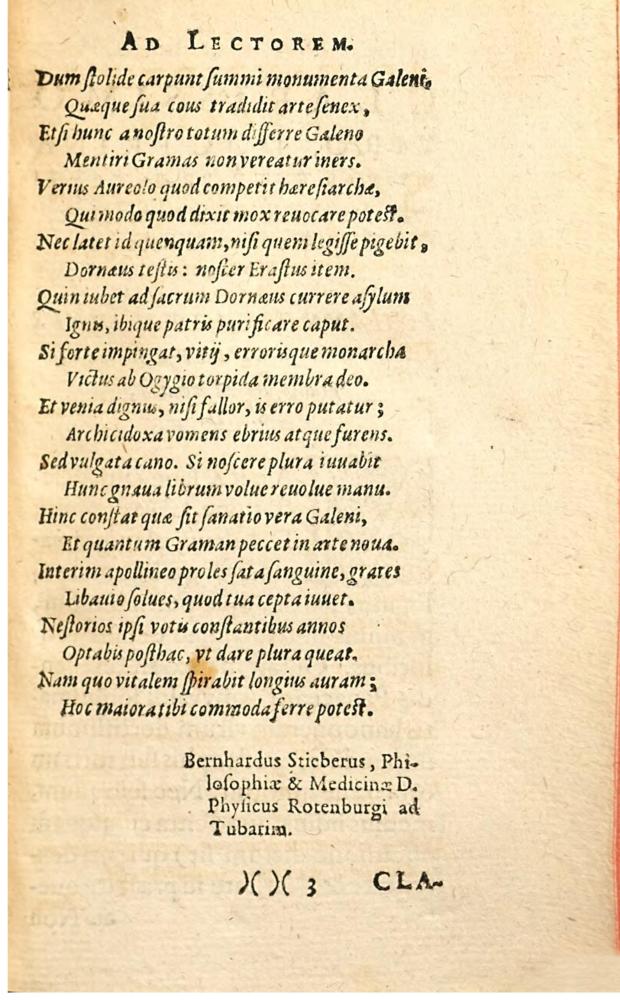 AD LECTOREM.
Dum ſtolide carpunt ſummi monumenta Galeni,
Quæque ſua cous tradidit arte ſenex,
Etſi hunc a noſtro totum differre Galeno
Mentiri Gramas non vereatur iners.
Verius Aureolo quod competit hæreſiarchæ,
Qui modo quod dixit mox reuocare poteſt.
Nec latet id quenquam, niſi quem legiſſe pigebit,
Dornæus teſtis: noſter Eraſtus item.
Quin iubet ad ſacrum Dornæus currere aſylum
Ignis, ibique patris purificare caput.
Si forte impingat, vitij, errorisque monarcha
Victus ab Ogygio torpida membra deo.
Et venia dignus, niſi fallor, is erro putatur;
Archicidoxa vomens ebrius atque furens.
Sed vulgata cano. Si noſcere plura iuuabit
Hunc gnaua librum volue reuolue manu.
Hinc conſtat quæ ſit ſanatio vera Galeni,
Et quantum Graman peccet in arte noua.
Interim apollineo proles ſata ſanguine, grates
Libauio ſolues, quod tua cepta iuuet.
Neſtorios ipſi votis conſtantibus annos
Optabis poſthac, vt dare plura queat.
Nam quo vitalem ſpirabit longius auram;
Hoc maiora tibi commoda ferre poteſt.
Bernhardus Stieberus, Phi-
loſophiæ & Medicinæ D.
Phyſicus Rotenburgi ad
Tubarim.
)( )( 3 CLA-